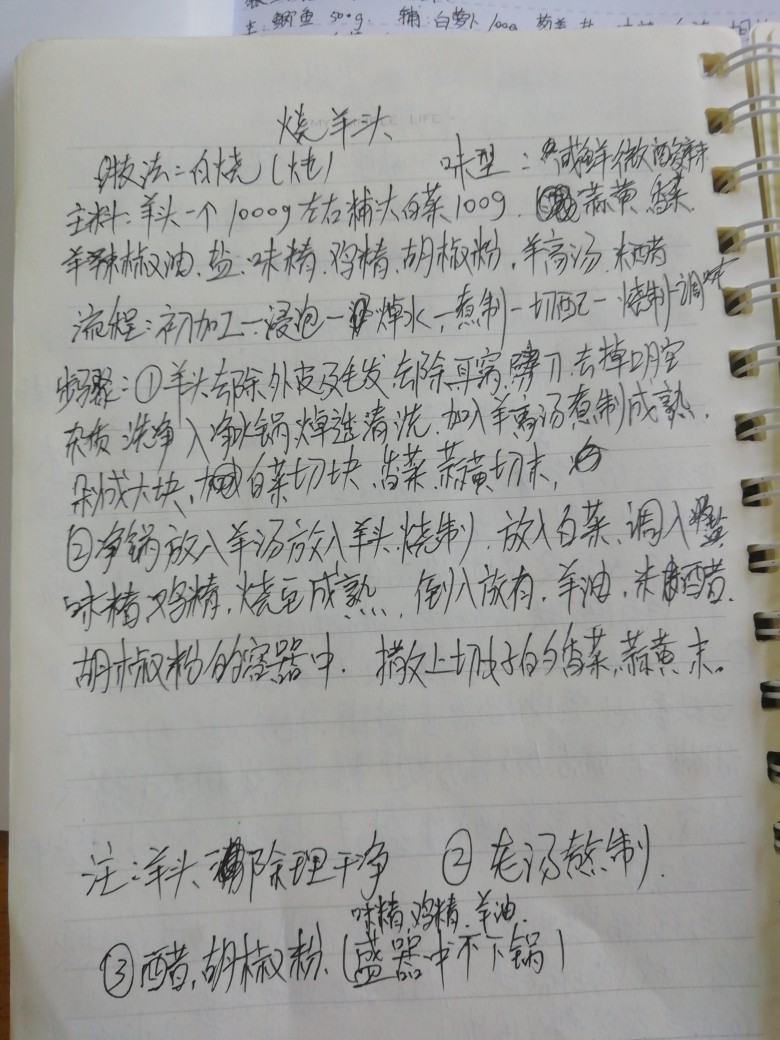 主:鲫鱼 500g. 辅:白萝卜 100g
烧羊头
技法:白烧(炖) 味型:咸鲜微酸辣
主料:羊头一个 1000g左右 辅大白菜100g. 蒜黄.香菜.
羊辣椒油.盐.味精.鸡精.胡椒粉.羊高汤.米醋
流程:初加工—浸泡—焯水—煮制—切配—烧制—调味
步骤:①羊头去除外皮及毛发 去除耳窝 去掉口腔
杂质 洗净 入净水锅焯透清洗.加入羊高汤煮制成熟.
剁成大块,白菜切块.香菜.蒜黄切末,
②净锅放入羊汤放入羊头.烧制.放入白菜、调入盐
味精 鸡精.烧至成熟.倒入放有.羊油,米醋.
胡椒粉的容器中. 撒上切好的香菜,蒜黄末。
注:羊头 除理干净 ②老汤熬制.
味精.鸡精.羊油.
③醋,胡椒粉.(盛器中不下锅)